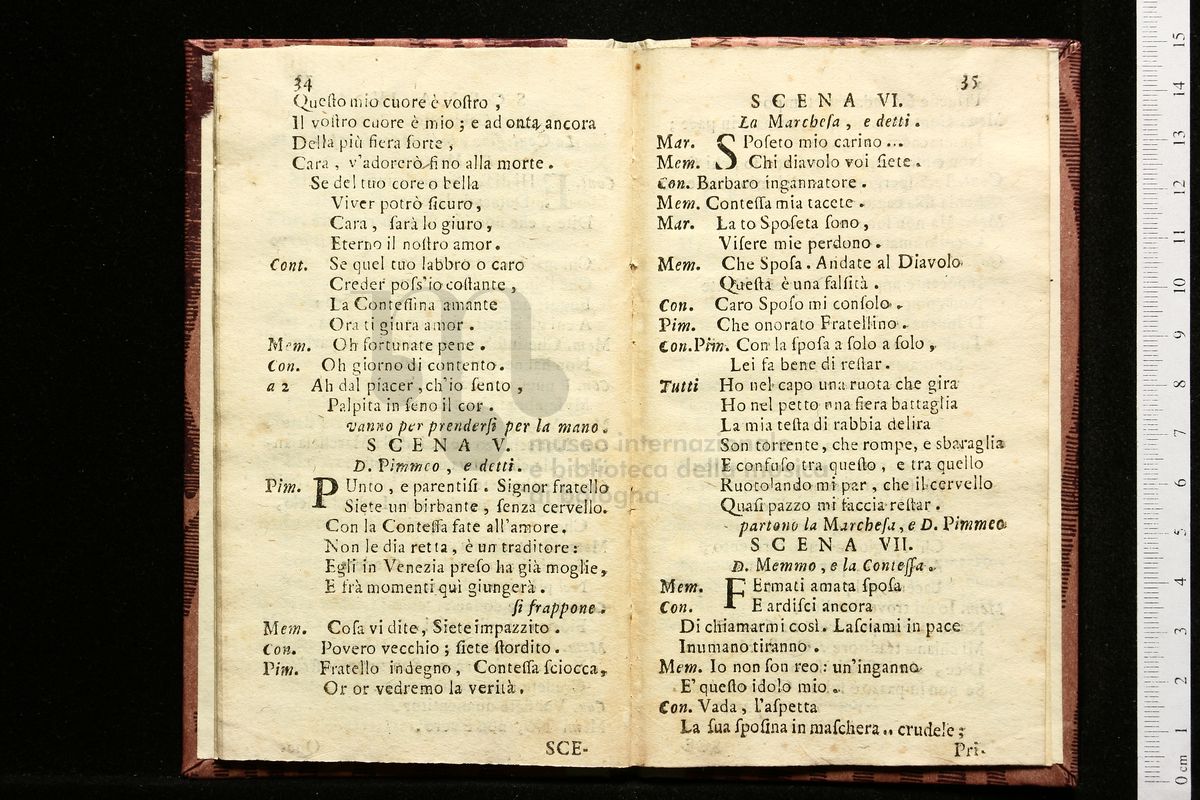 34
Queſto mio cuore è voſtro ,
Il vòſtro cuore è mio ; e ad onta ancora
Della più fiera ſorte ,
Cara , v'adorerò fino alla morte .
Se del tuo core o bella
Viver potrò ſicuro ,
Cara , ſarà lo giuro ,
Eterno il noſtro amor .
Cont. Se quel tuo labbro o caro
Creder poſs'io coſtante ,
La Conteſſina amante
Ora ti giura amor .
Mem. Oh fortunate pene .
Con. Oh giorno di contento .
a 2 Ah dal piacer , ch'io ſento ,
Palpita in ſeno il cor .
vanno per prenderſi per la mano .
SCENA V.
D. Pimmeo , e detti .
Pim. PUnto , e parentiſi . Signor fratello
Siete un birbante , ſenza cervello.
Con la Conteſſa fate all'amore .
Non le dia retta , è un traditore :
Egli in Venezia preſo ha già moglie ,
E frà momenti quì giungerà .
ſi frappone .
Mem. Coſa vi dite , Siete impazzito .
Con. Povero vecchio ; ſiete ſtordito .
Pim. Fratello indegno , Conteſſa ſciocca ,
Or or vedremo la verità .
SCE-
35
SCENA VI.
La Marcheſa , e detti .
Mar. SPoſeto mio carino ...
Mem. Chi diavolo voi ſiete .
Con. Barbaro ingannatore .
Mem. Conteſſa mia tacete .
Mar. La to Spoſeta ſono ,
Viſere mie perdono .
Mem. Che Spoſa . Andate al Diavolo
Queſta è una falſità .
Con. Caro Spoſo mi conſolo .
Pim. Che onorato Fratellino .
Con.Pim. Con la ſpoſa a ſolo a ſolo ,
Lei fa bene di reſtar .
Tutti Ho nel capo una ruota che gira
Ho nel petto una fiera battaglia
La mia teſta di rabbia delira
Son torrente , che rompe, e sbaraglia
E confuſo tra queſto , e tra quello
Ruotolando mi par , che il cervello
Quaſi pazzo mi faccia reſtar .
partono la Marcheſa , e D. Pimmeo
SCENA VII.
D. Memmo , e la Conteſſa .
Mem. FErmati amata ſpoſa
Con. E ardiſci ancora
Di chiamarmi così . Laſciami in pace
Inumano tiranno .
Mem. Io non ſon reo : un'inganno
E' queſto idolo mio .
Con. Vada , l'aſpetta
La ſua ſpoſina in maſchera .. crudele ;
Pri-
museo internazionale
e biblioteca della musica
di bologna
15
14
13
12
11
10
9
8
7
6
5
4
3
2
1
0 cm